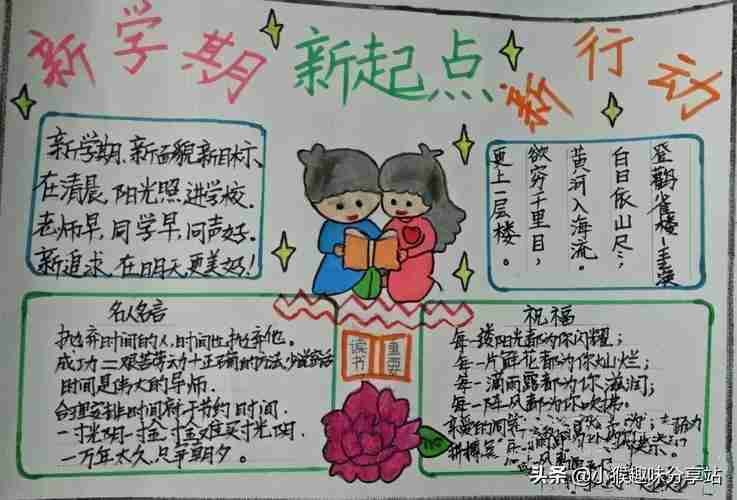 新学期 新起点 新行动
新学期、新面貌新目标、
在清晨,阳光照进学校.
老师早,同学早,同声好.
新追求,在明天更美好!
登鹳雀楼-王之涣
白日依山尽,
黄河入海流。
欲穷千里目,
更上一层楼。
名人名言
抛弃时间的人,时间也抛弃他.
成功=艰苦劳动+正确的方法+少说空话
时间是伟大的导师.
合理安排时间就等于节约时间.
一寸光阴一寸金,寸金难买寸光阴.
一万年太久,只争朝夕。
读书
重要
祝福
每一缕阳光都为你闪耀;
每一片鲜花都为你灿烂;
每一滴雨露都为你滋润;
每一阵风都为你吹拂。
亲爱的同学
努力
拼搏
头条 @小猴趣味分享站